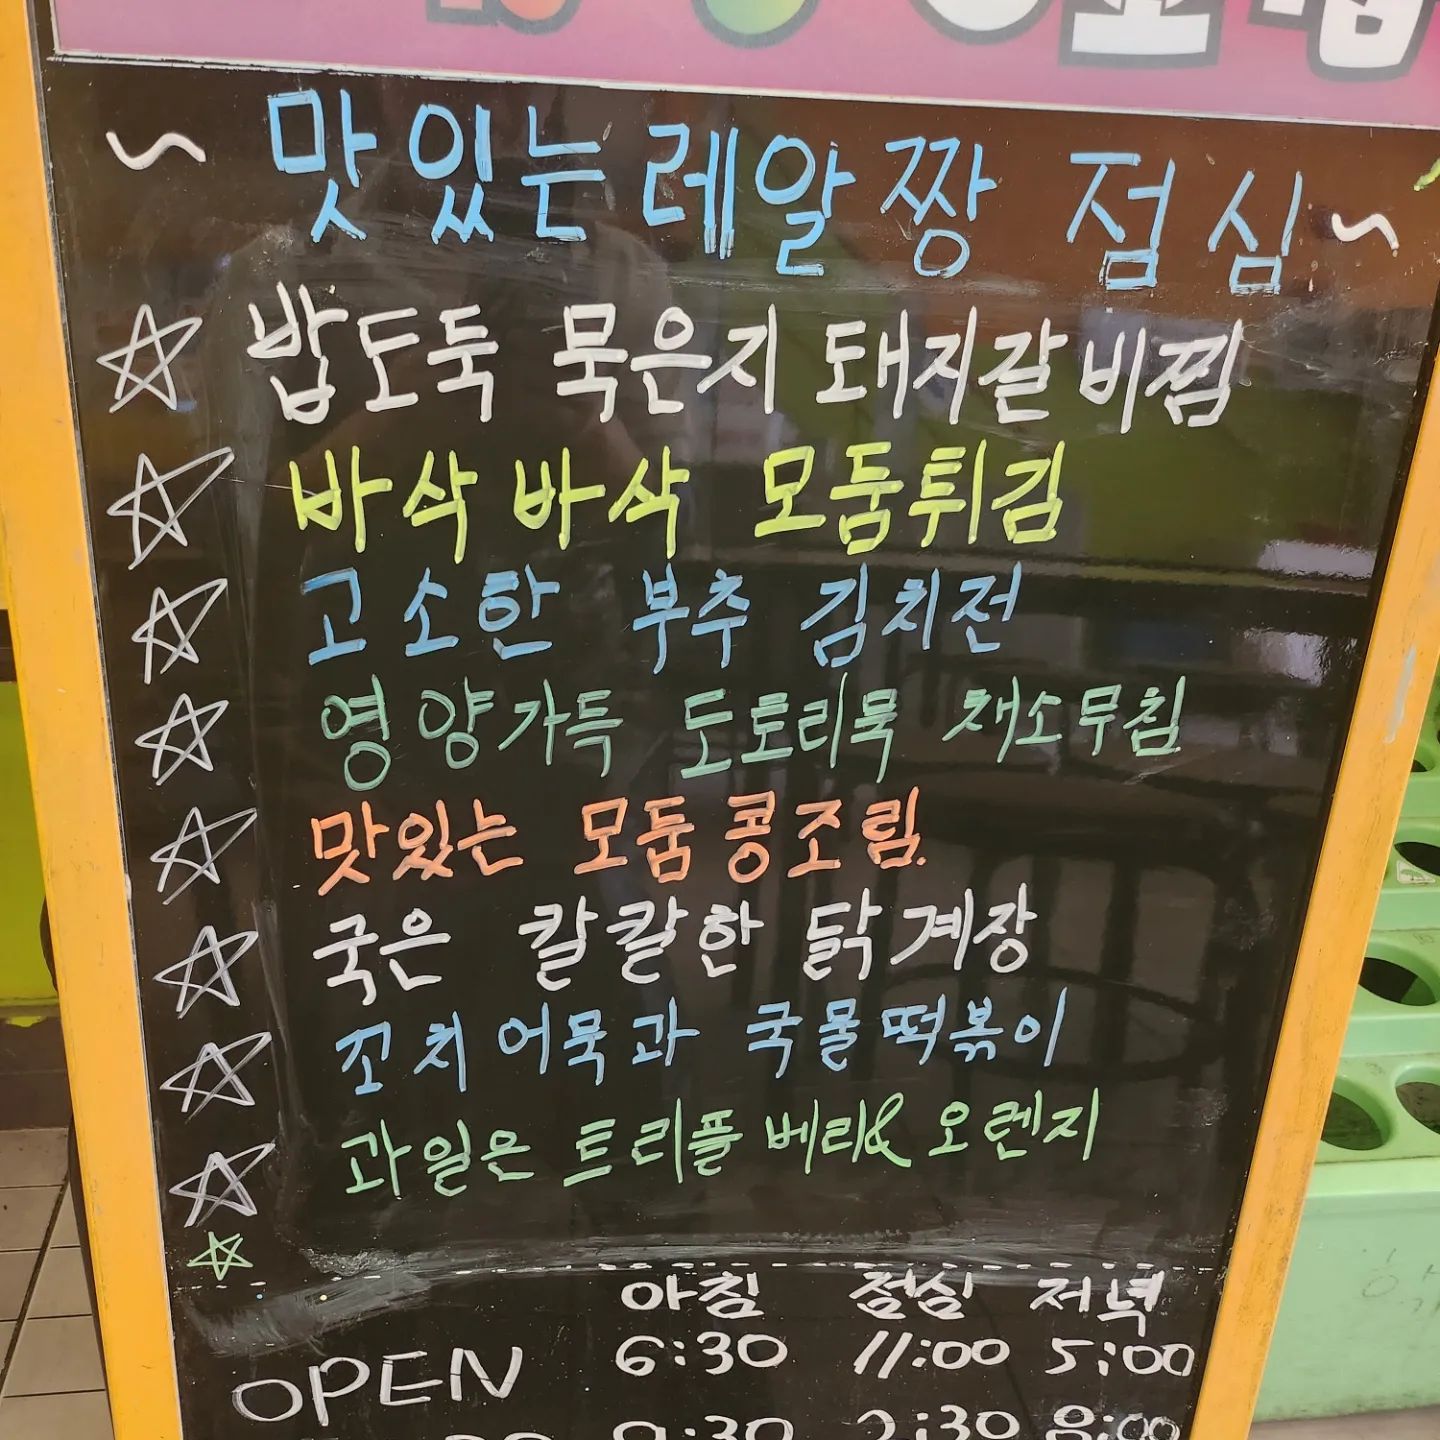 ~ 맛있는레알짱 점심 ~
☆ 밥도둑 묵은지 돼지갈비찜
☆ 바삭바삭 모둠튀김
☆ 고소한 부추 김치전
☆ 영양가득 도토리묵 채소무침
☆ 맛있는 모둠콩조림.
☆ 국은 칼칼한 닭계장
☆ 꼬치어묵과 국물떡볶이
☆ 과일은 트리플베리& 오렌지
☆
아침 점심 저녁
OPEN 6:30 11:00 5:00
9:30 2:30 8:00